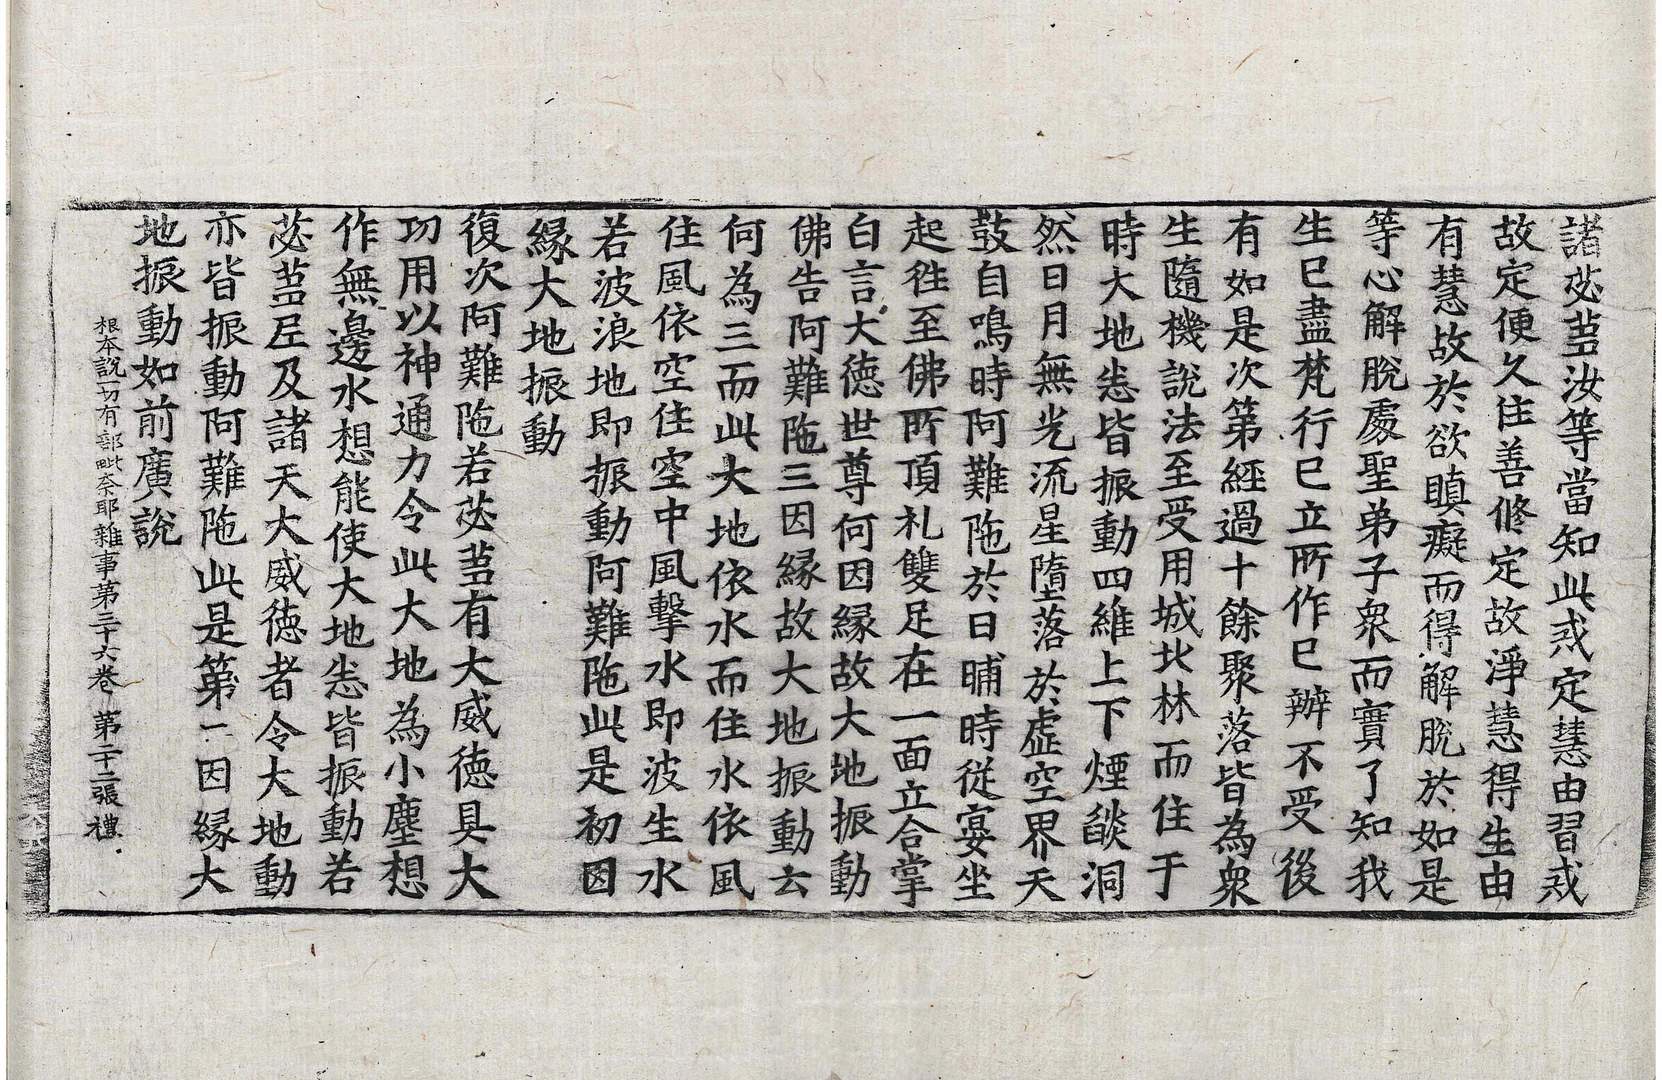 諸苾芻汝等當知此戒定慧由習戒
故定便久住善修定故淨慧得生由
有慧故於欲瞋癡而得解脫於如是
等心解脫處聖弟子衆而實了知我
生已盡梵行已立所作已辦不受後
有如是次第經過十餘聚落皆為衆
生隨機說法至受用城北林而住于
時大地悉皆振動四維上下煙𦦨洞
然日月無光流星墮落於虛空界天
鼓自鳴時阿難陁於日晡時從宴坐
起往至佛所頂礼雙足在一面立合掌
白言大德世尊何因縁故大地振動
佛告阿難陁三因縁故大地振動云
何為三而此大地依水而住水依風
住風依空住空中風擊水即波生水
若波浪地即振動阿難陁此是初因
縁大地振動
復次阿難陁若苾芻有大威德具大
功用以神通力令此大地為小塵想
作無邊水想能使大地悉皆振動若
苾芻𡰱及諸天大威德者令大地動
亦皆振動阿難陁此是第二因縁大
地振動如前廣說
根本說一切有部毗奈耶雜事第三十六卷　第二十二張　禮